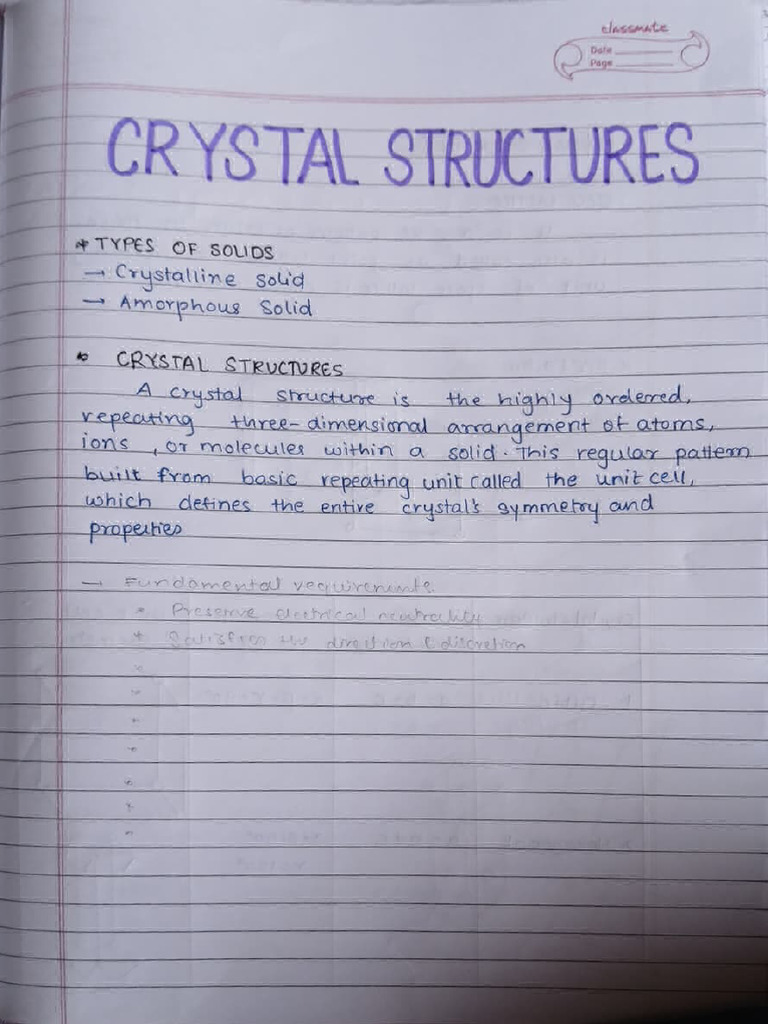 classmate
Date
Page
CRYSTAL STRUCTURES
* TYPES OF SOLIDS
→ Crystalline Solid
→ Amorphous Solid
* CRYSTAL STRUCTURES
A crystal structure is the highly ordered,
repeating three-dimensional arrangement of atoms,
ions, or molecules within a solid. This regular pattern
built from basic repeating unit called the unit cell,
which defines the entire crystal's symmetry and
properties
→ Fundamental requirements
* Preserve electrical neutrality
* the direction & discretion